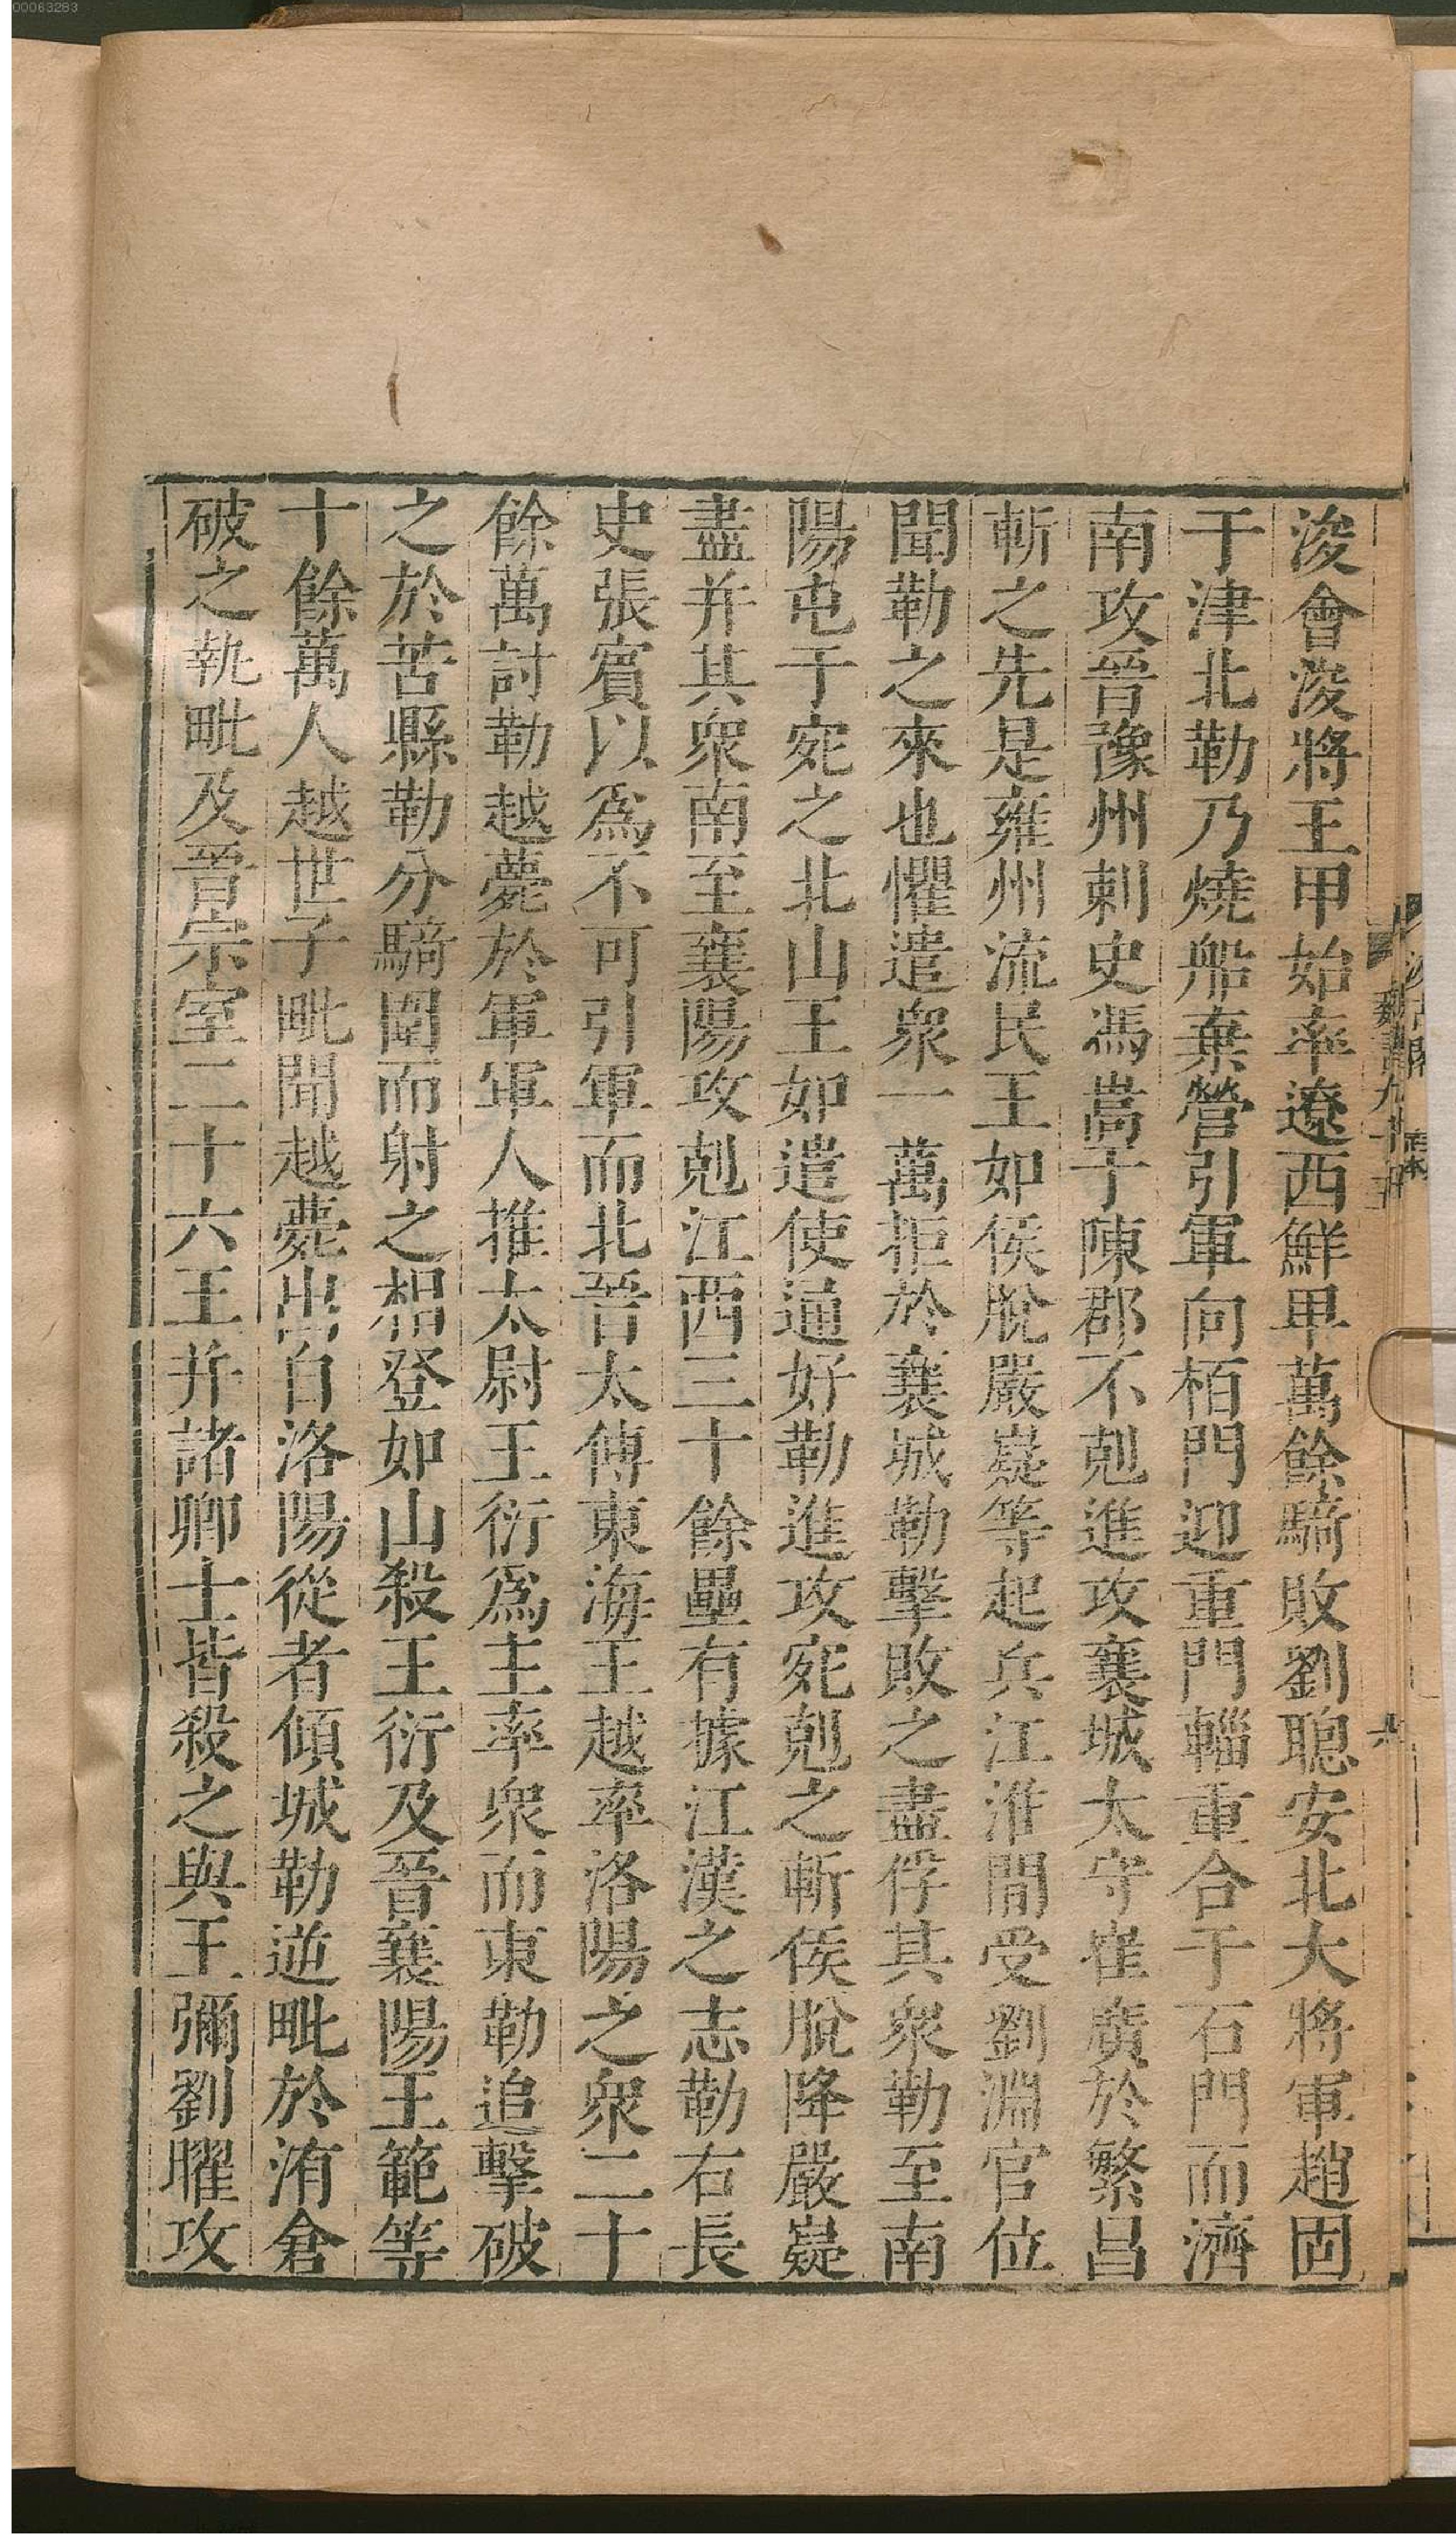 浚會浚將王甲始率遼西鮮卑萬餘騎敗劉聰安北大將軍趙固
于津北勒乃燒船棄營引軍向栢門迎重門輜重合于石門而濟
南攻晉豫州刺史馮嵩于陳郡不剋進攻襄城太守崔廣於繁昌
斬之先是雍州流民王如侯脫嚴嶷等起兵江淮間受劉淵官位
聞勒之來也懼遣衆一萬拒於襄城勒擊敗之盡俘其衆勒至南
陽屯于宛之北山王如遣使通好勒進攻宛剋之斬侯脫降嚴嶷
盡并其衆南至襄陽攻剋江西三十餘壘有據江漢之志勒右長
史張賓以爲不可引軍而北晉太傅東海王越率洛陽之衆二十
餘萬討勒越薨於軍軍人推太尉王衍爲主率衆而東勒追擊破
之於苦縣勒分騎圍而射之相登如山殺王衍及晉襄陽王範等
十餘萬人越世子毗聞越薨出自洛陽從者傾城勒逆毗於洧倉
破之執毗及晉宗室二十六王并諸卿士皆殺之與王彌劉曜攻
00063283